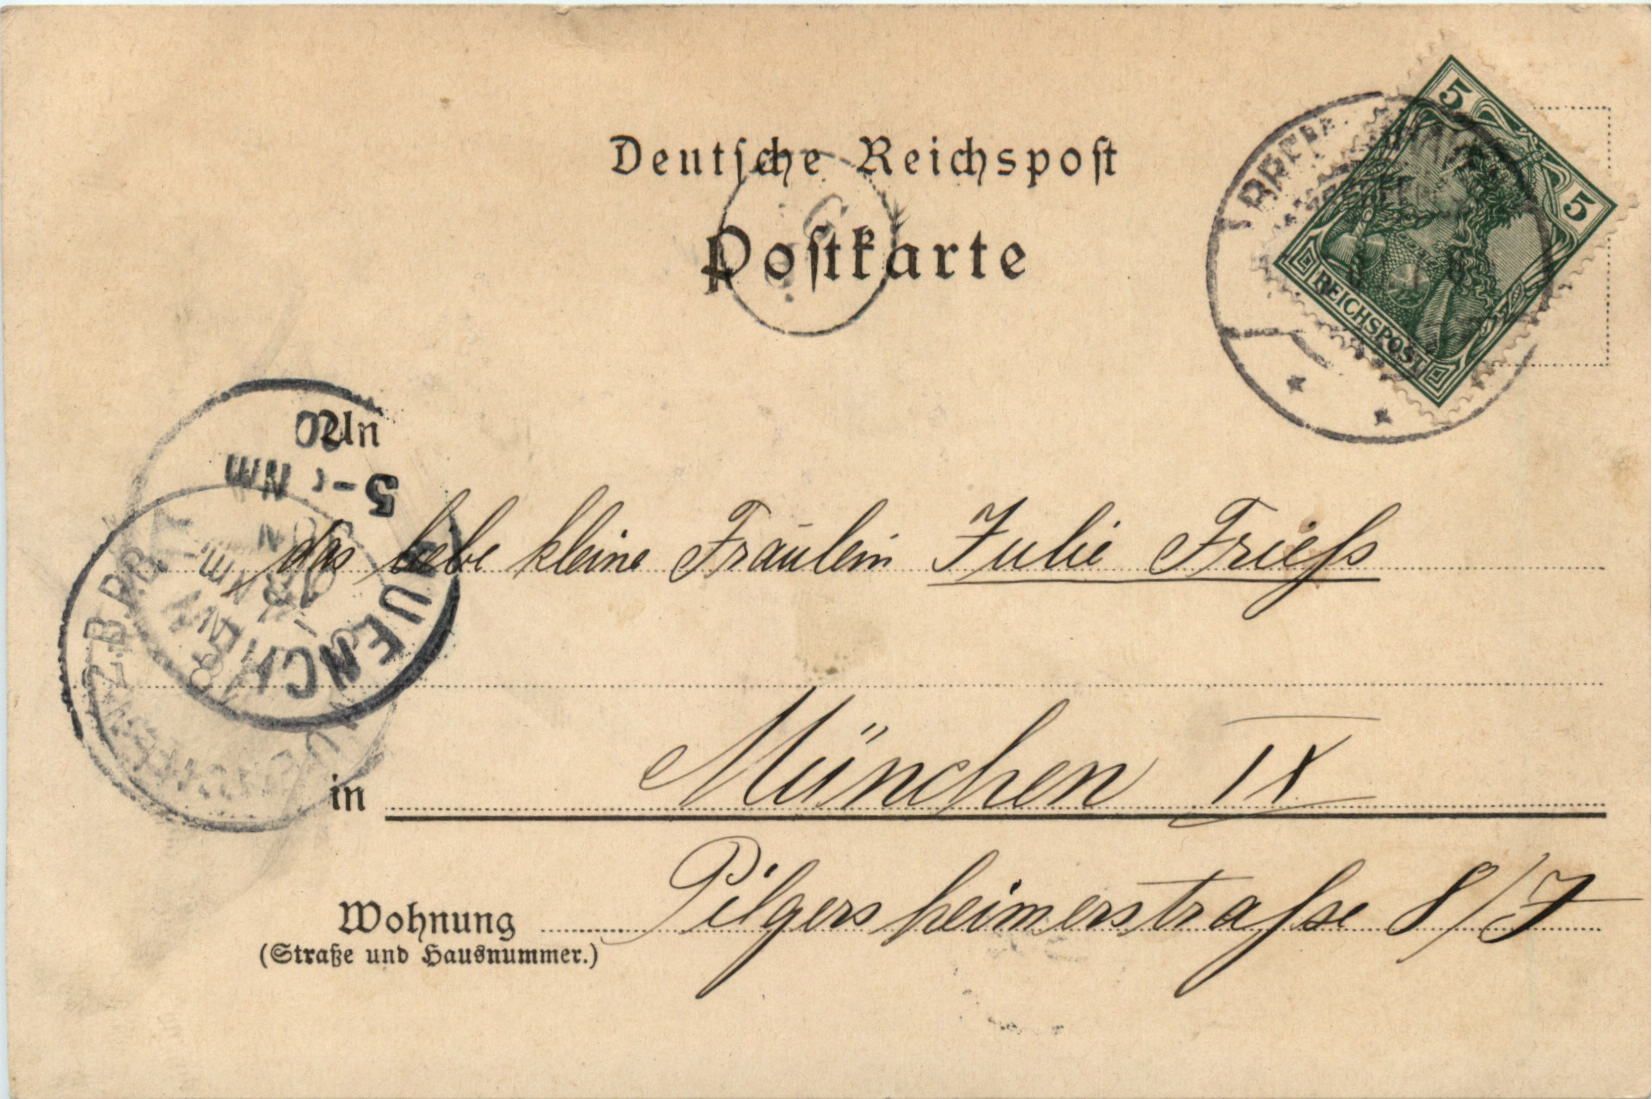 Deutsche Reichspost
Postkarte
5
5
REICHSPOST
An
5- NM
das liebe kleine Fräulein Julie Friess
MUENCHEN
in München IX
Wohnung Pilgersheimerstrasse 8/I
(Straße und Hausnummer.)